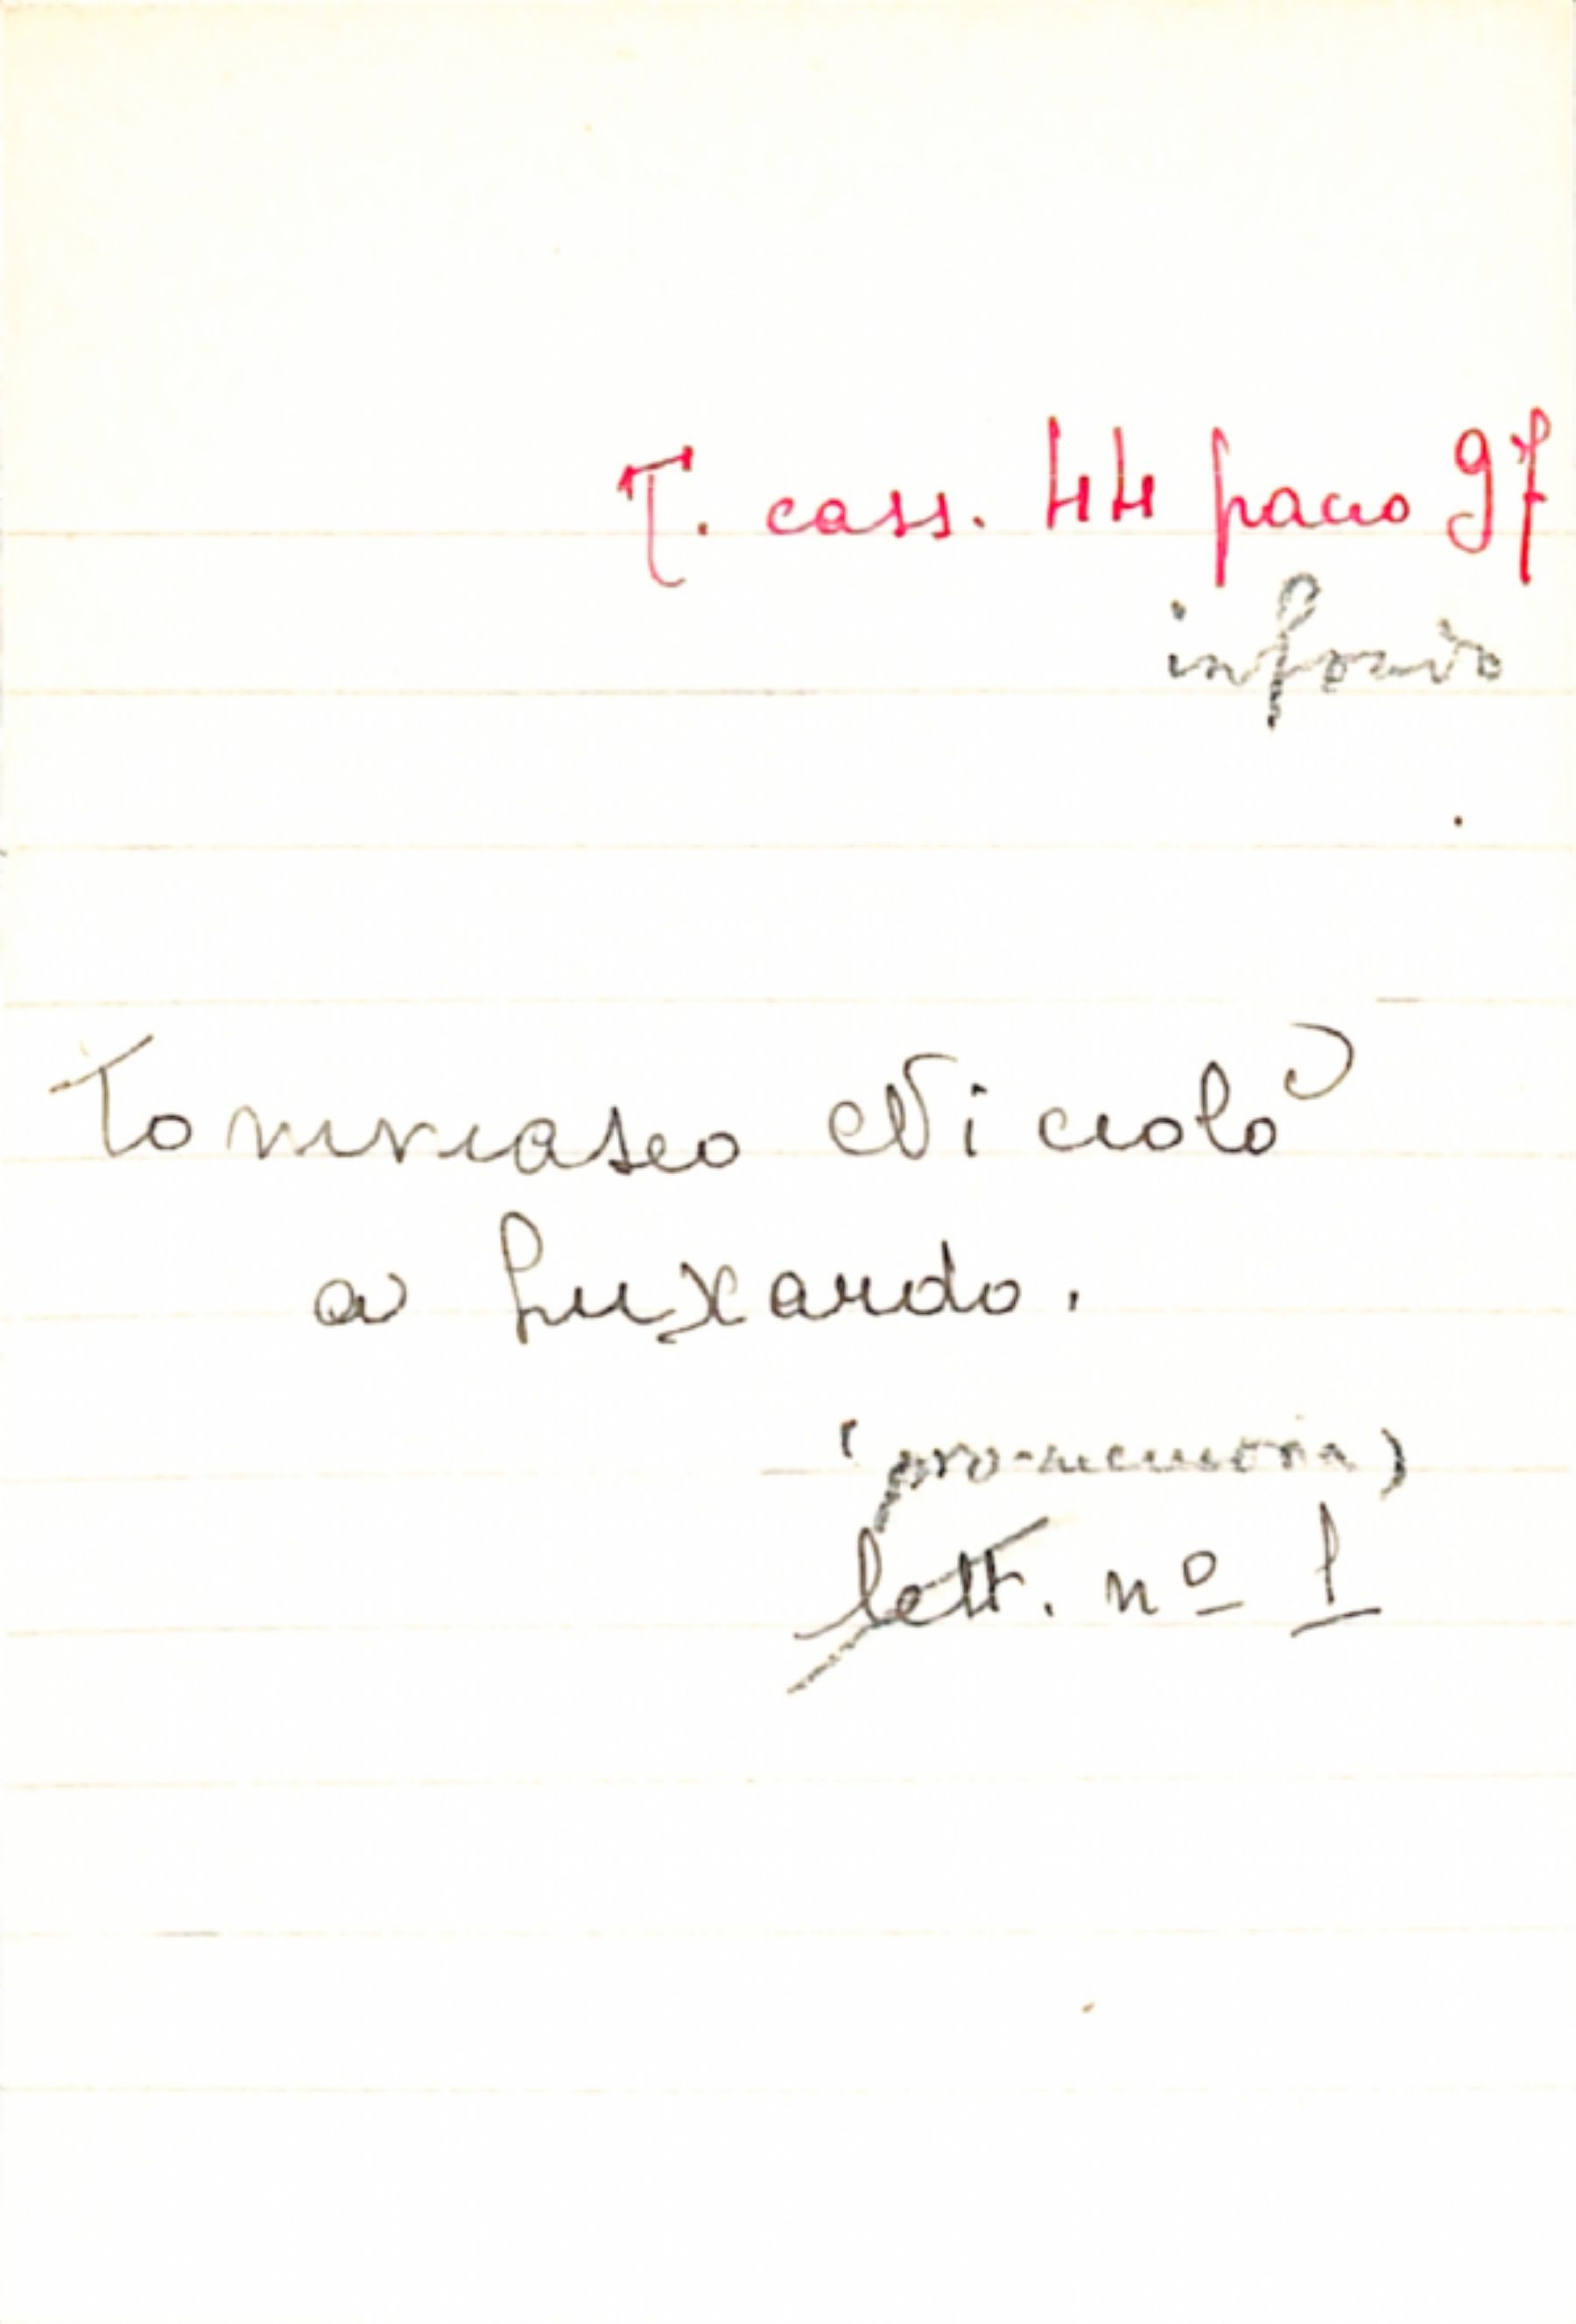 T. cass. 44 pacco 97
in fondo
Tommaseo Nicolò
a Luxardo.
(pro-memoria)
lett. nº 1